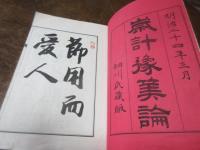 明治二十四年三月
歳計豫算論
細川氏蔵版
節用而
愛人